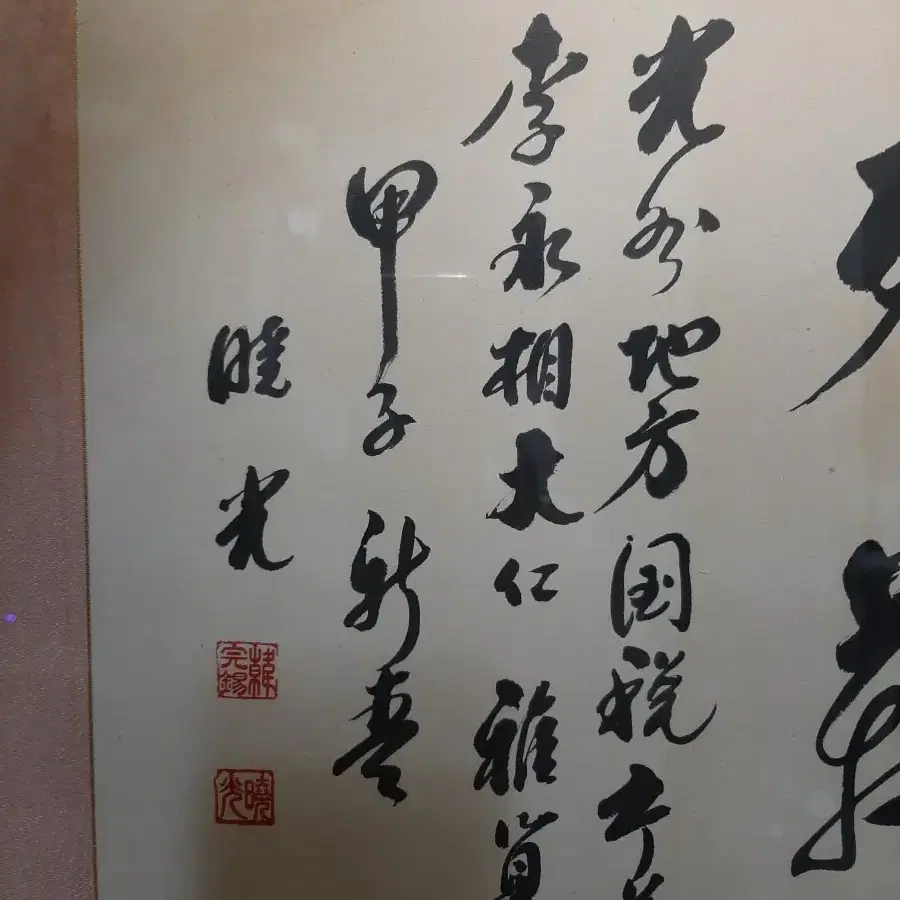 光州地方国税
李永相大仁雅
甲子新春
曉光
韓完錫
曉光